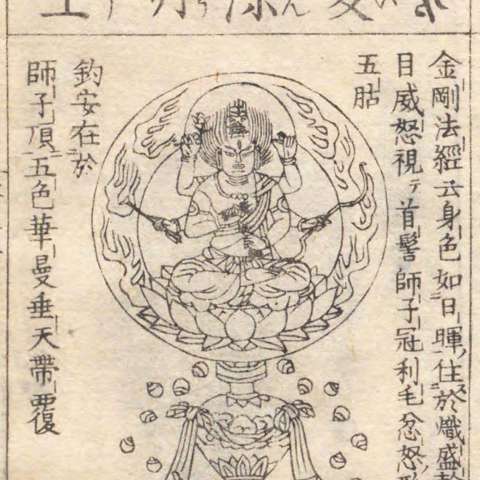 金剛法經云身色如日暉住於熾盛
目威怒視テ首髻師子冠利毛忿怒形
五
鈎安在於
師子頂五色華曼垂天帶覆